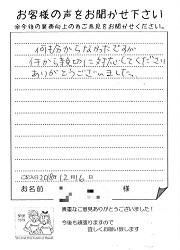 お客様の声をお聞かせ下さい
※今後の業務向上の為ご意見をお聞かせください。
何も分からなかったですが
1から親切に対応してくださり
ありがとうございました。
ご記入日 2018年12月16日
お名前 様
貴重なご意見ありがとうございました!
今後も頑張りますので
宜しくお願い致します